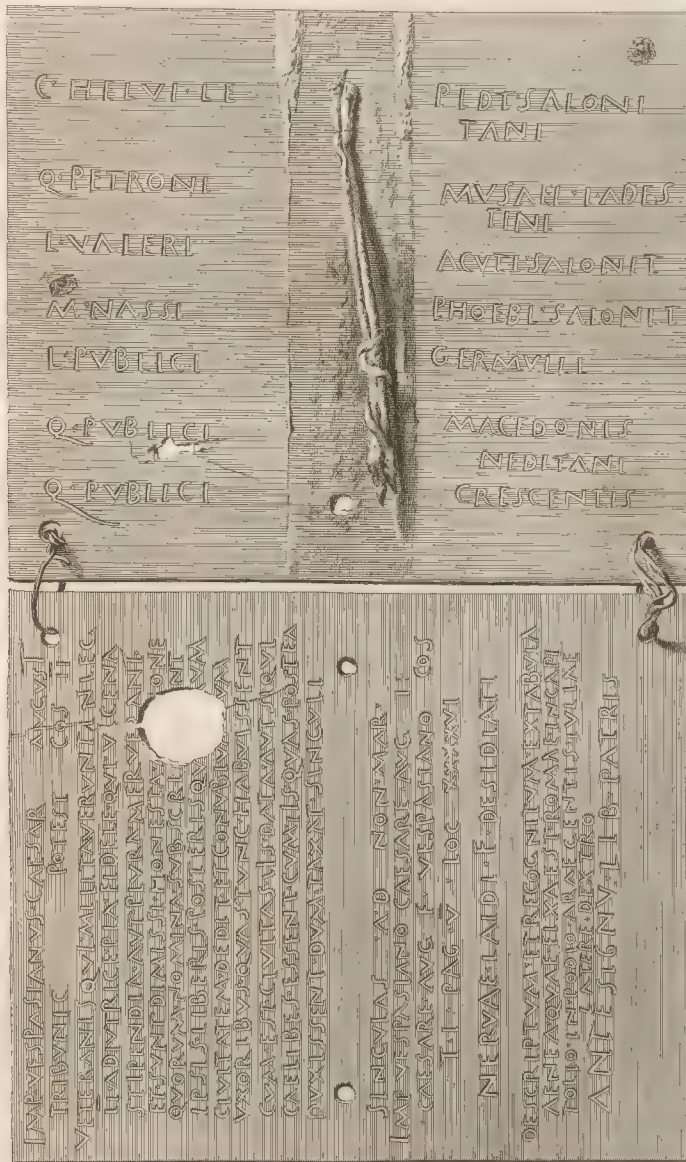 C·HELVI·LE PIDI·SALONI
TANI
Q·PETRONI MVSAEI·IADES
TINI
L·VALERI ACVTI·SALONIT
M·NASSI PHOEBI·SALONIT
L·PVBLICI GERMVLLI
Q·PVBLICI MACEDONIS
NEDITANI
Q·PVBLICI CRESCENTIS
IMP·VESPASIANVS·CAESAR AVGVSI
TRIBVNIC POTEST COS II
VETERANIS·QVI·MILITAVERVNT·IN·LEG
II·ADIVTRICE·PIA·FIDELE·QVI·VICENA
STIPENDIA·AVT·PLVRA·MERVERANT
ET·SVNT·DIMISSI·HONESTA ONE
QVORVM·NOMINA·SVBSCRI NT
IPSIS·LIBERIS·POSTERISQ VM
CIVITATEM·DEDIT·ET·CONVBI VM
VXORIBVS·QVAS·TVNC·HABVISSENT
CVM·EST·CIVITAS·IIS·DATA·AVT·SIQVI
CAELIBES·ESSENT·CVM·IIS·QVAS·POSTEA
DVXISSENT·DVMTAXAT·SINGVLI
SINGVLAS A·D NON·MAR
IMP·VESPASIANO·CAESARE·AVG II
CAESARE·AVG·F·VESPASIANO COS
T·I PAG·V LOC XXXXVI
NERVAE·LAIDI·F·DESIDIATI
DESCRIPTVM·ET·RECOGNITVM·EX·TABVLA
AENEA·QVAE·FIXA·EST·ROMAE·IN·CAPI
TOLIO·IN·PODIO·ARAE·GENTIS·IVLIAE
LATERE·DEXTRO
ANTE·SIGNV·LIB·PATRIS